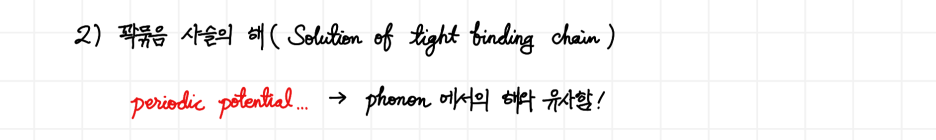 2) 꽉묶음 사슬의 해 ( Solution of tight binding chain )
periodic potential... → phonon 에서의 해와 유사할!